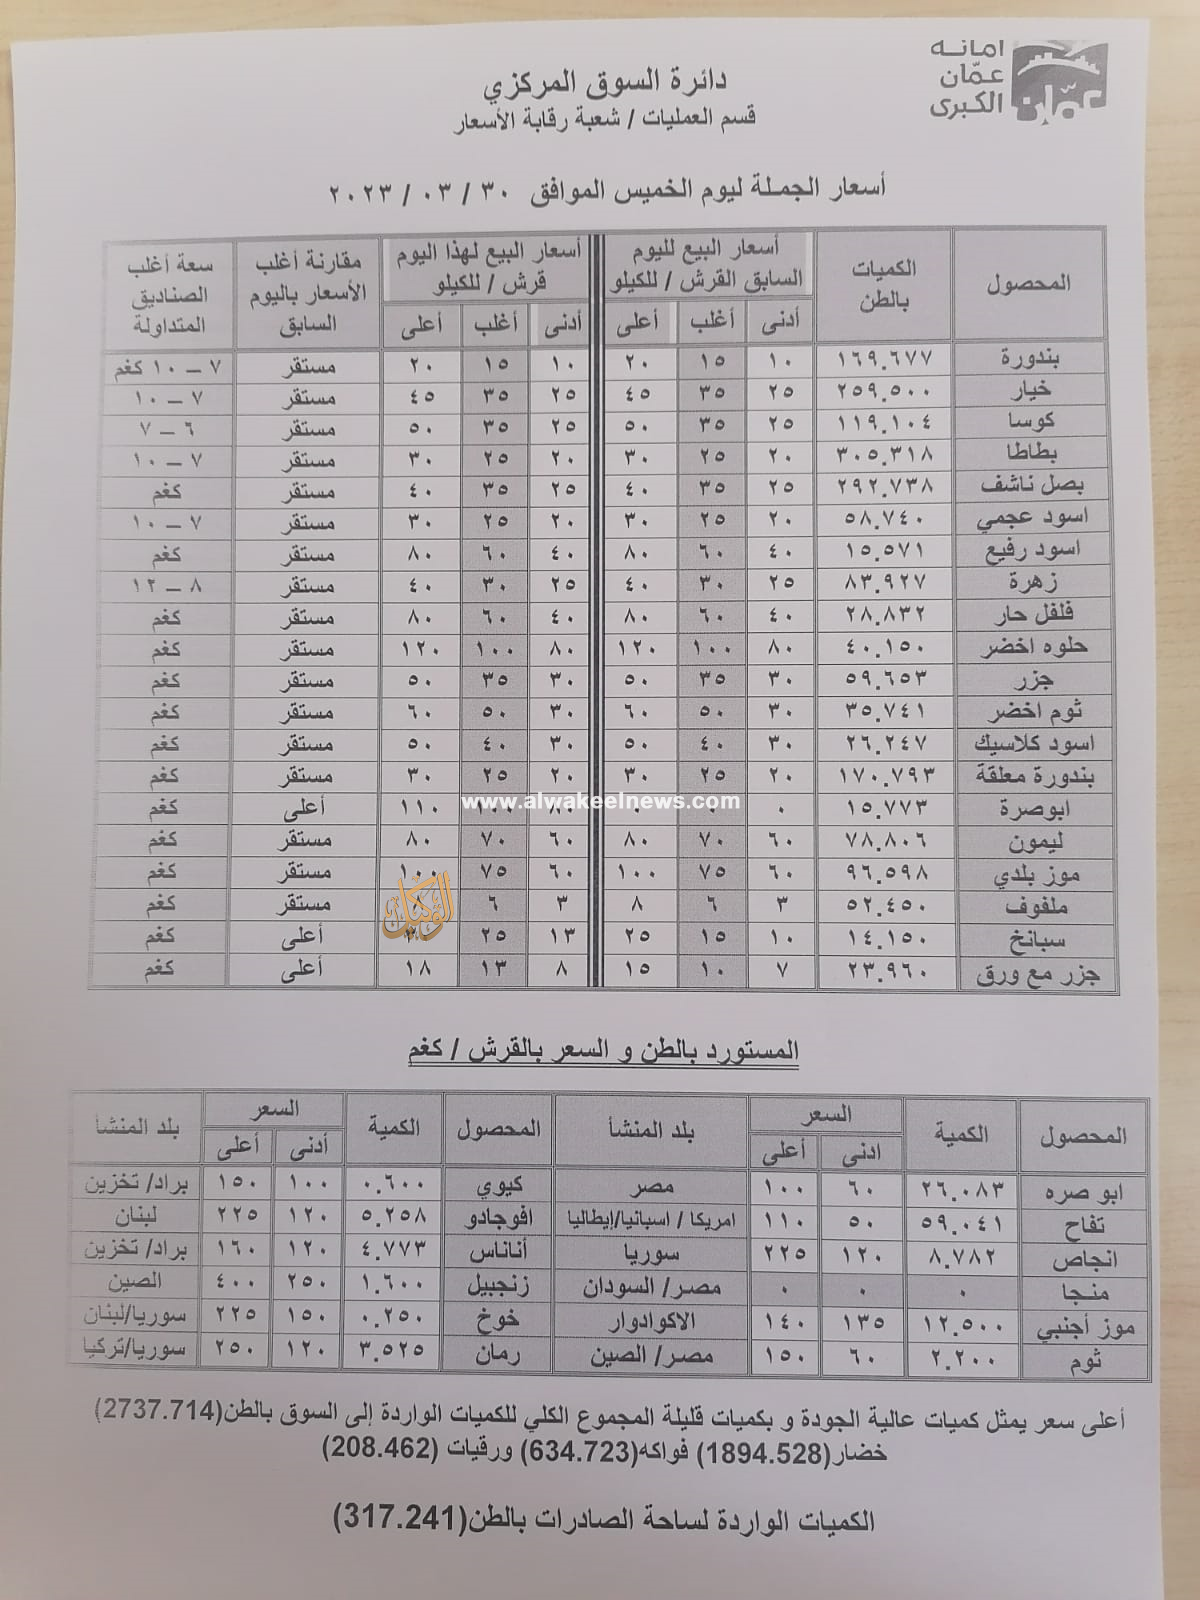 امانة
عمّان
الكبرى
عمّان
دائرة السوق المركزي
قسم العمليات / شعبة رقابة الأسعار
أسعار الجملة ليوم الخميس الموافق ٣٠ / ٠٣ / ٢٠٢٣
المحصول الكميات بالطن أسعار البيع لليوم السابق القرش / للكيلو أسعار البيع لهذا اليوم قرش / للكيلو مقارنة أغلب الأسعار باليوم السابق سعة أغلب الصناديق المتداولة
أدنى أغلب أعلى أدنى أغلب أعلى
بندورة ١٦٩.٦٧٧ ١٠ ١٥ ٢٠ ١٠ ١٥ ٢٠ مستقر ٧ – ١٠ كغم
خيار ٢٥٩.٥٠٠ ٢٥ ٣٥ ٤٥ ٢٥ ٣٥ ٤٥ مستقر ٧ – ١٠
كوسا ١١٩.١٠٤ ٢٥ ٣٥ ٥٠ ٢٥ ٣٥ ٥٠ مستقر ٦ – ٧
بطاطا ٣٠٥.٣١٨ ٢٠ ٢٥ ٣٠ ٢٠ ٢٥ ٣٠ مستقر ٧ – ١٠
بصل ناشف ٢٩٢.٧٣٨ ٢٥ ٣٥ ٤٠ ٢٥ ٣٥ ٤٠ مستقر كغم
اسود عجمي ٥٨.٧٤٠ ٢٠ ٢٥ ٣٠ ٢٠ ٢٥ ٣٠ مستقر ٧ – ١٠
اسود رفيع ١٥.٥٧١ ٤٠ ٦٠ ٨٠ ٤٠ ٦٠ ٨٠ مستقر كغم
زهرة ٨٣.٩٢٧ ٢٥ ٣٠ ٤٠ ٢٥ ٣٠ ٤٠ مستقر ٨ – ١٢
فلفل حار ٢٨.٨٣٢ ٤٠ ٦٠ ٨٠ ٤٠ ٦٠ ٨٠ مستقر كغم
حلوه اخضر ٤٠.١٥٠ ٨٠ ١٠٠ ١٢٠ ٨٠ ١٠٠ ١٢٠ مستقر كغم
جزر ٥٩.٦٥٣ ٣٠ ٣٥ ٥٠ ٣٠ ٣٥ ٥٠ مستقر كغم
ثوم اخضر ٣٥.٧٤١ ٣٠ ٥٠ ٦٠ ٣٠ ٥٠ ٦٠ مستقر كغم
اسود كلاسيك ٢٦.٢٤٧ ٣٠ ٤٠ ٥٠ ٣٠ ٤٠ ٥٠ مستقر كغم
بندورة معلقة ١٧٠.٧٩٣ ٢٠ ٢٥ ٣٠ ٢٠ ٢٥ ٣٠ مستقر كغم
ابوصرة ١٥.٧٧٣ ٠ ١١٠ أعلى كغم
www.alwakeelnews.com
ليمون ٧٨.٨٠٦ ٦٠ ٧٠ ٨٠ ٦٠ ٧٠ ٨٠ مستقر كغم
موز بلدي ٩٦.٥٩٨ ٦٠ ٧٥ ١٠٠ ٦٠ ٧٥ ١٠٠ مستقر كغم
ملفوف ٥٢.٤٥٠ ٣ ٦ ٨ ٣ ٦ مستقر كغم
الوكيل
سبانخ ١٤.١٥٠ ١٠ ١٥ ٢٥ ١٣ ٢٥ أعلى كغم
جزر مع ورق ٢٣.٩٦٠ ٧ ١٠ ١٥ ٨ ١٣ ١٨ أعلى كغم
المستورد بالطن و السعر بالقرش / كغم
المحصول الكمية السعر بلد المنشأ المحصول الكمية السعر بلد المنشأ
ادنى أعلى أدنى أعلى
ابو صره ٢٦.٠٨٣ ٦٠ ١٠٠ مصر كيوي ٠.٦٠٠ ١٠٠ ١٥٠ براد/ تخزين
تفاح ٥٩.٠٤١ ٥٠ ١١٠ امريكا / اسبانيا/إيطاليا افوجادو ٥.٢٥٨ ١٢٠ ٢٢٥ لبنان
انجاص ٨.٧٨٢ ١٢٠ ٢٢٥ سوريا أناناس ٤.٧٧٣ ١٢٠ ١٦٠ براد/ تخزين
منجا ٠ ٠ ٠ مصر/ السودان زنجبيل ١.٦٠٠ ٢٥٠ ٤٠٠ الصين
موز أجنبي ١٢.٥٠٠ ١٣٥ ١٤٠ الاكوادوار خوخ ٠.٢٥٠ ١٥٠ ٢٢٥ سوريا/لبنان
ثوم ٢.٢٠٠ ٦٠ ١٥٠ مصر/ الصين رمان ٣.٥٢٥ ١٢٠ ٢٥٠ سوريا/تركيا
أعلى سعر يمثل كميات عالية الجودة و بكميات قليلة المجموع الكلي للكميات الواردة إلى السوق بالطن(2737.714)
خضار(1894.528) فواكه(634.723) ورقيات (208.462)
الكميات الواردة لساحة الصادرات بالطن(317.241)